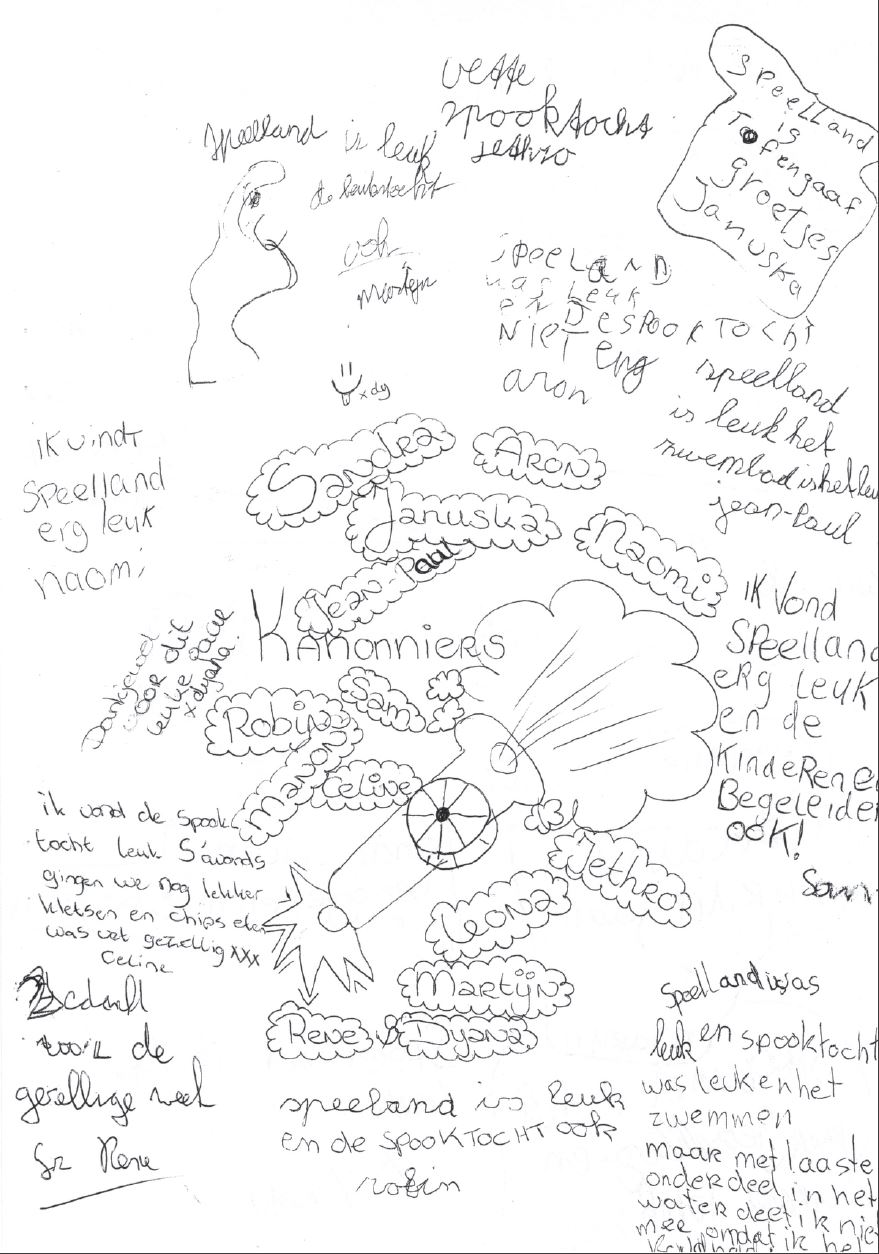 vette
spooktocht
Jethro
Speelland is leuk
de
ook
Martijn
Speelland
is
Tofengaaf
groetjes
Januska
SpeeLAND
was Leuk
en DeSPOOKTOCHT
NIET Eng
aron
xdy
speelland
is leuk het
zwembad is het leu
jean-Paul
ik vindt
speelland
erg leuk
naomi
Sandra
Aron
Januska
Naomi
Jean-Paul
Kanonniers
Dankjewel
voor dit
leuke
xdyana.
Robin
Sam
Manon
Celine
ik vond
Speelland
erg leuk
en de
kinderen en
Begeleider
ook!
Sam
ik vond de spook
tocht leuk S'avonds
gingen we nog lekker
kletsen en chips eten
was wel gezellig xxx
Celine
Jethro
Leona
Martijn
Rene & Dyana
Bedankt
voor de
gezellige week
Gr Rene
speeland is leuk
en de SPOOKTOCHT ook
robin
Speelland was
leuk en spooktocht
was leuk en het
zwemmen
maar met laaste
onderdeel in het
water deet ik nie
mee omdat ik het